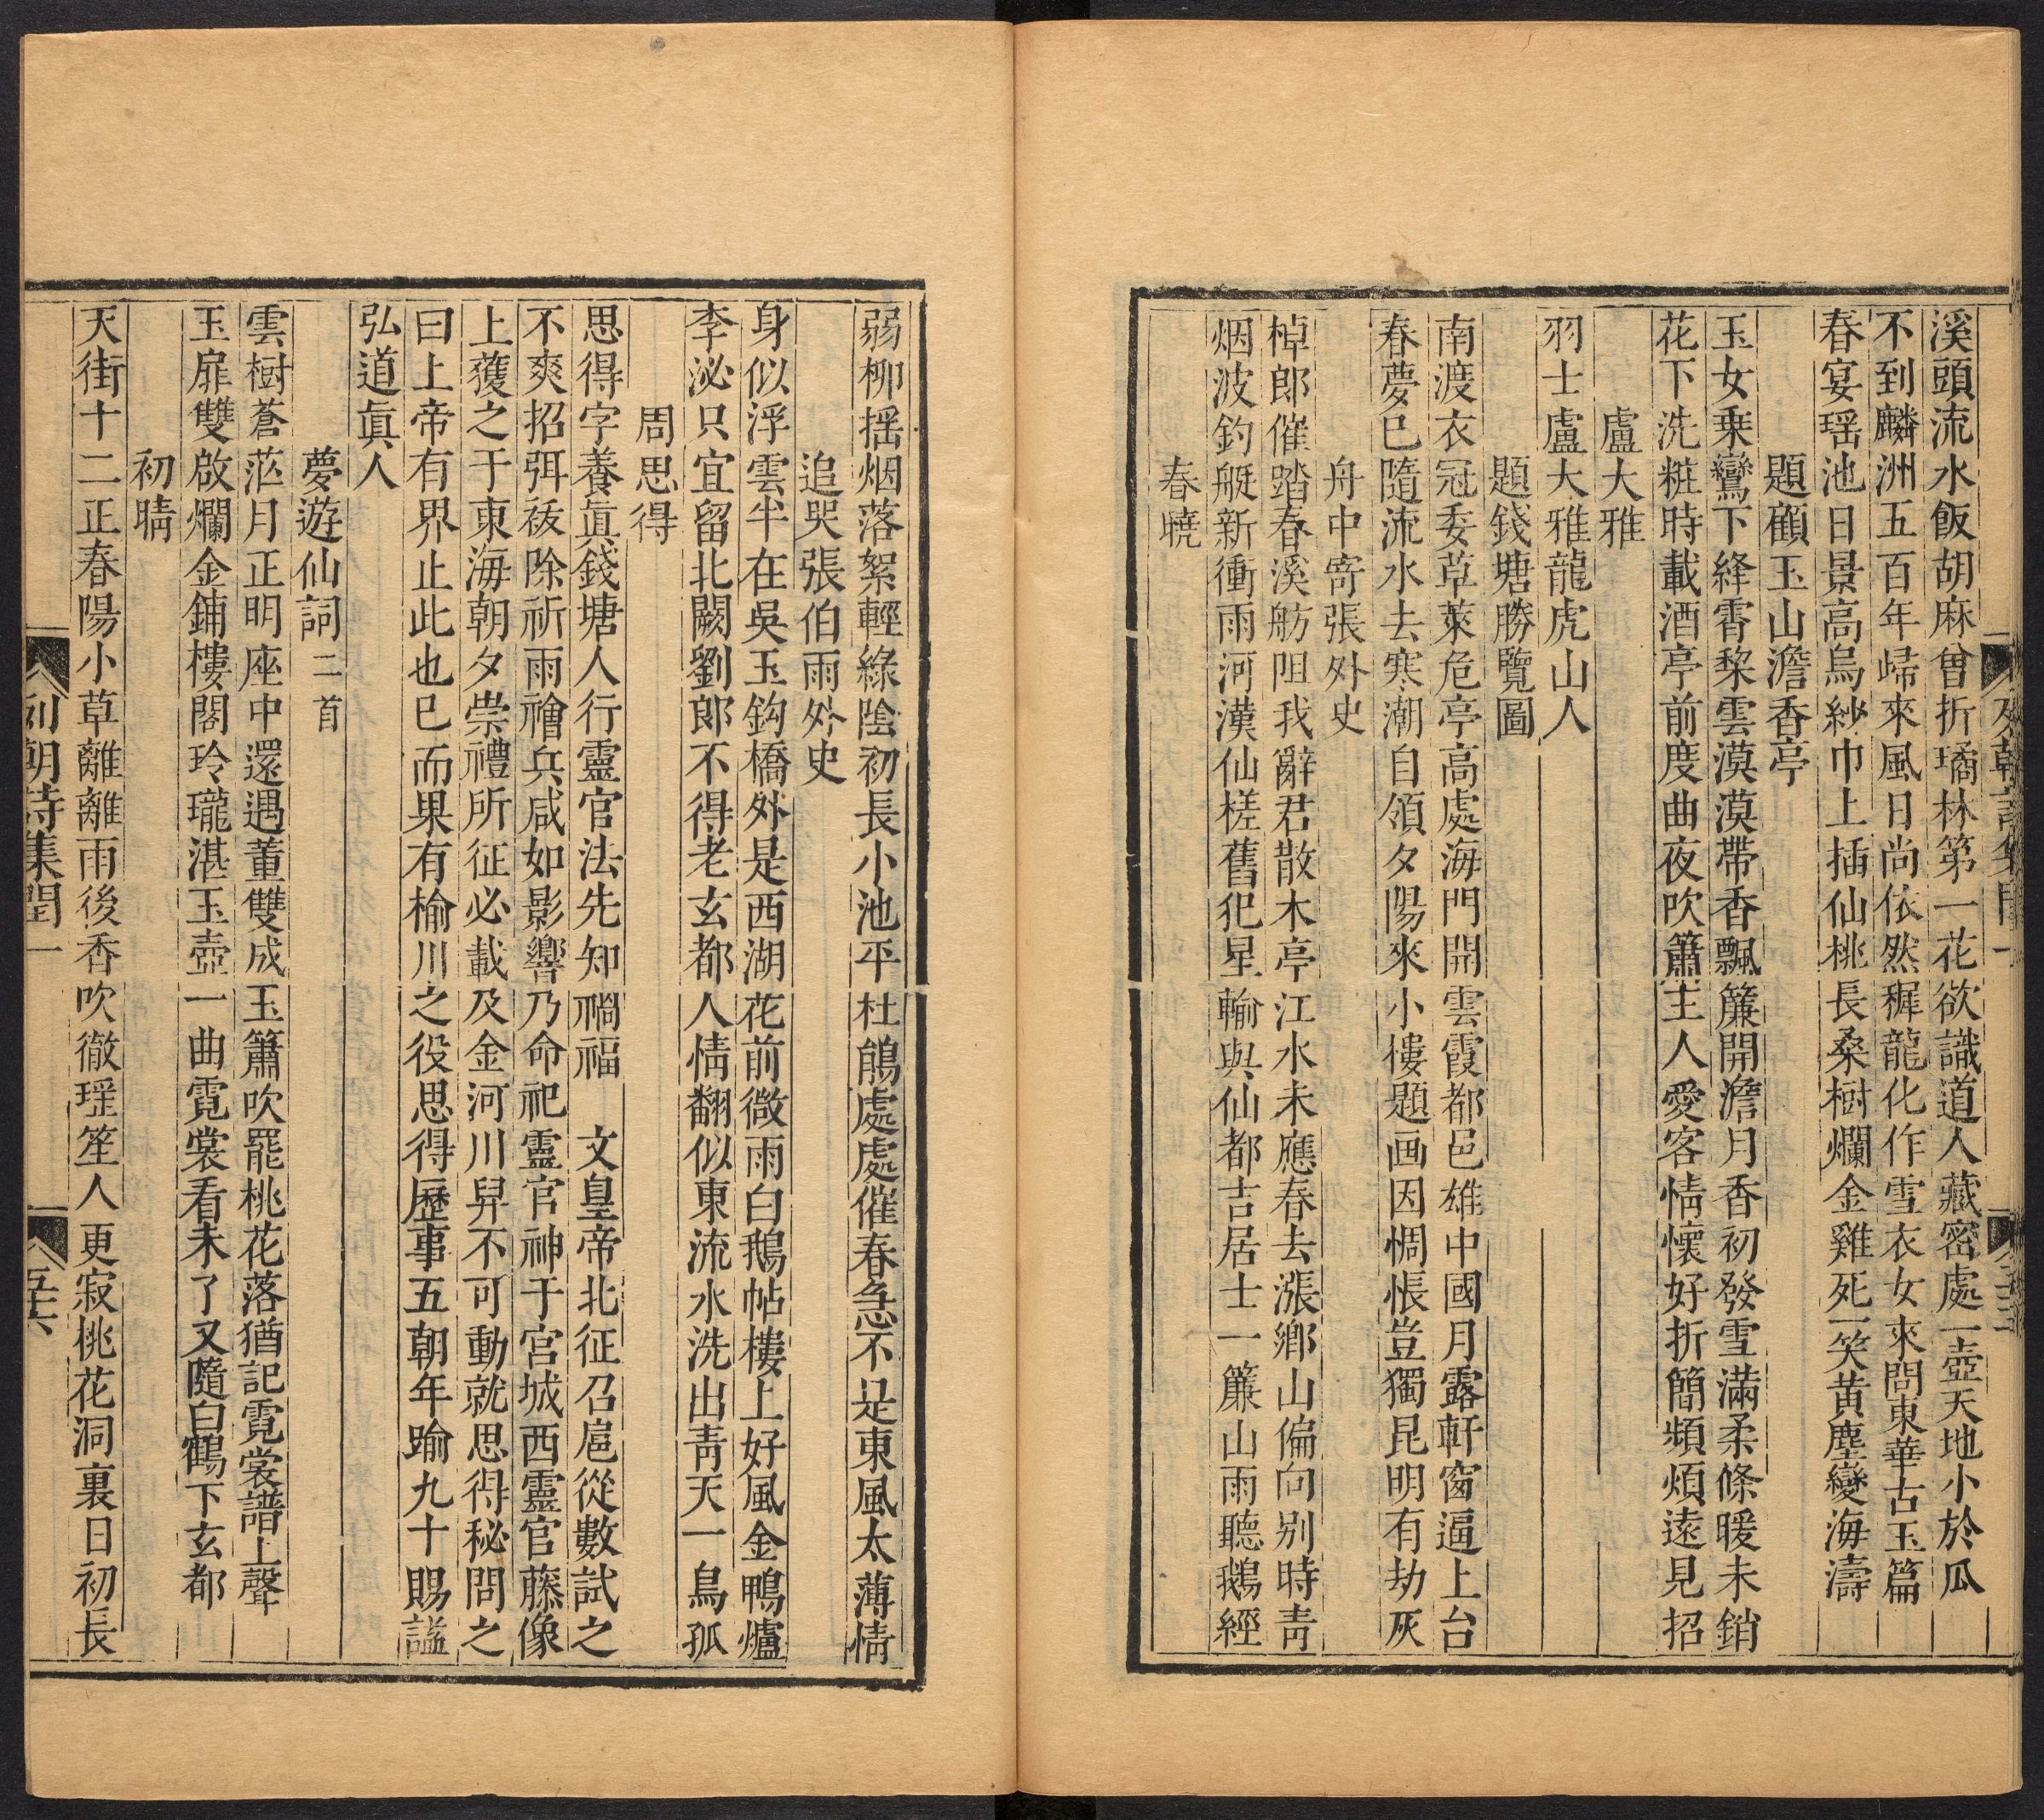 溪頭流水飯胡麻曾折璚林第一花欲識道人藏密處一壺天地小於瓜
不到麟洲五百年歸來風日尚依然穉龍化作雪衣女來問東華古玉篇
春宴瑶池日景高烏紗巾上插仙桃長桑樹爛金雞死一笑黃塵變海濤
題顧玉山澹香亭
玉女乗鸞下絳霄梨雲漠漠帶香飄簾開澹月香初發雪滿柔條暖未銷
花下洗粧時載酒亭前度曲夜吹簫主人愛客情懷好折簡頻煩遠見招
盧大雅
羽士盧大雅龍虎山人
題錢塘勝覽圖
南渡衣冠委草萊危亭高處海門開雲霞都邑雄中國月露軒窗逼上台
春夢已隨流水去寒潮自領夕陽來小樓題画因惆悵豈獨昆明有劫灰
舟中寄張外史
棹郎催踏春溪舫阻我辭君散木亭江水未應春去漲鄉山偏向別時靑
烟波釣艇新衝雨河漢仙槎舊犯星輸與仙都吉居士一簾山雨聽鵝經
春曉
弱柳揺烟落絮輕綠陰初長小池平杜鵑處處催春急不是東風太薄情
追哭張伯雨外史
身似浮雲半在吳玉鈎橋外是西湖花前微雨白鵝帖樓上好風金鴨爐
李泌只宜留北闕劉郎不得老玄都人情翻似東流水洗出靑天一鳥孤
周思得
思得字養眞錢塘人行靈官法先知禍福 文皇帝北征召扈從數試之
不爽招弭祓除祈雨禬兵咸如影響乃命祀靈官神于宮城西靈官藤像
上獲之于東海朝夕崇禮所征必載及金河川舁不可動就思得秘問之
曰上帝有界止此也已而果有榆川之役思得歷事五朝年踰九十賜諡
弘道眞人
夢遊仙詞二首
雲樹蒼茫月正明座中還遇董雙成玉簫吹罷桃花落猶記霓裳譜上聲
玉扉雙啟爛金鋪樓閣玲瓏湛玉壺一曲霓裳看未了又隨白鶴下玄都
初晴
天街十二正春陽小草離離雨後香吹徹瑶笙人更寂桃花洞裏日初長
列朝詩集閏一